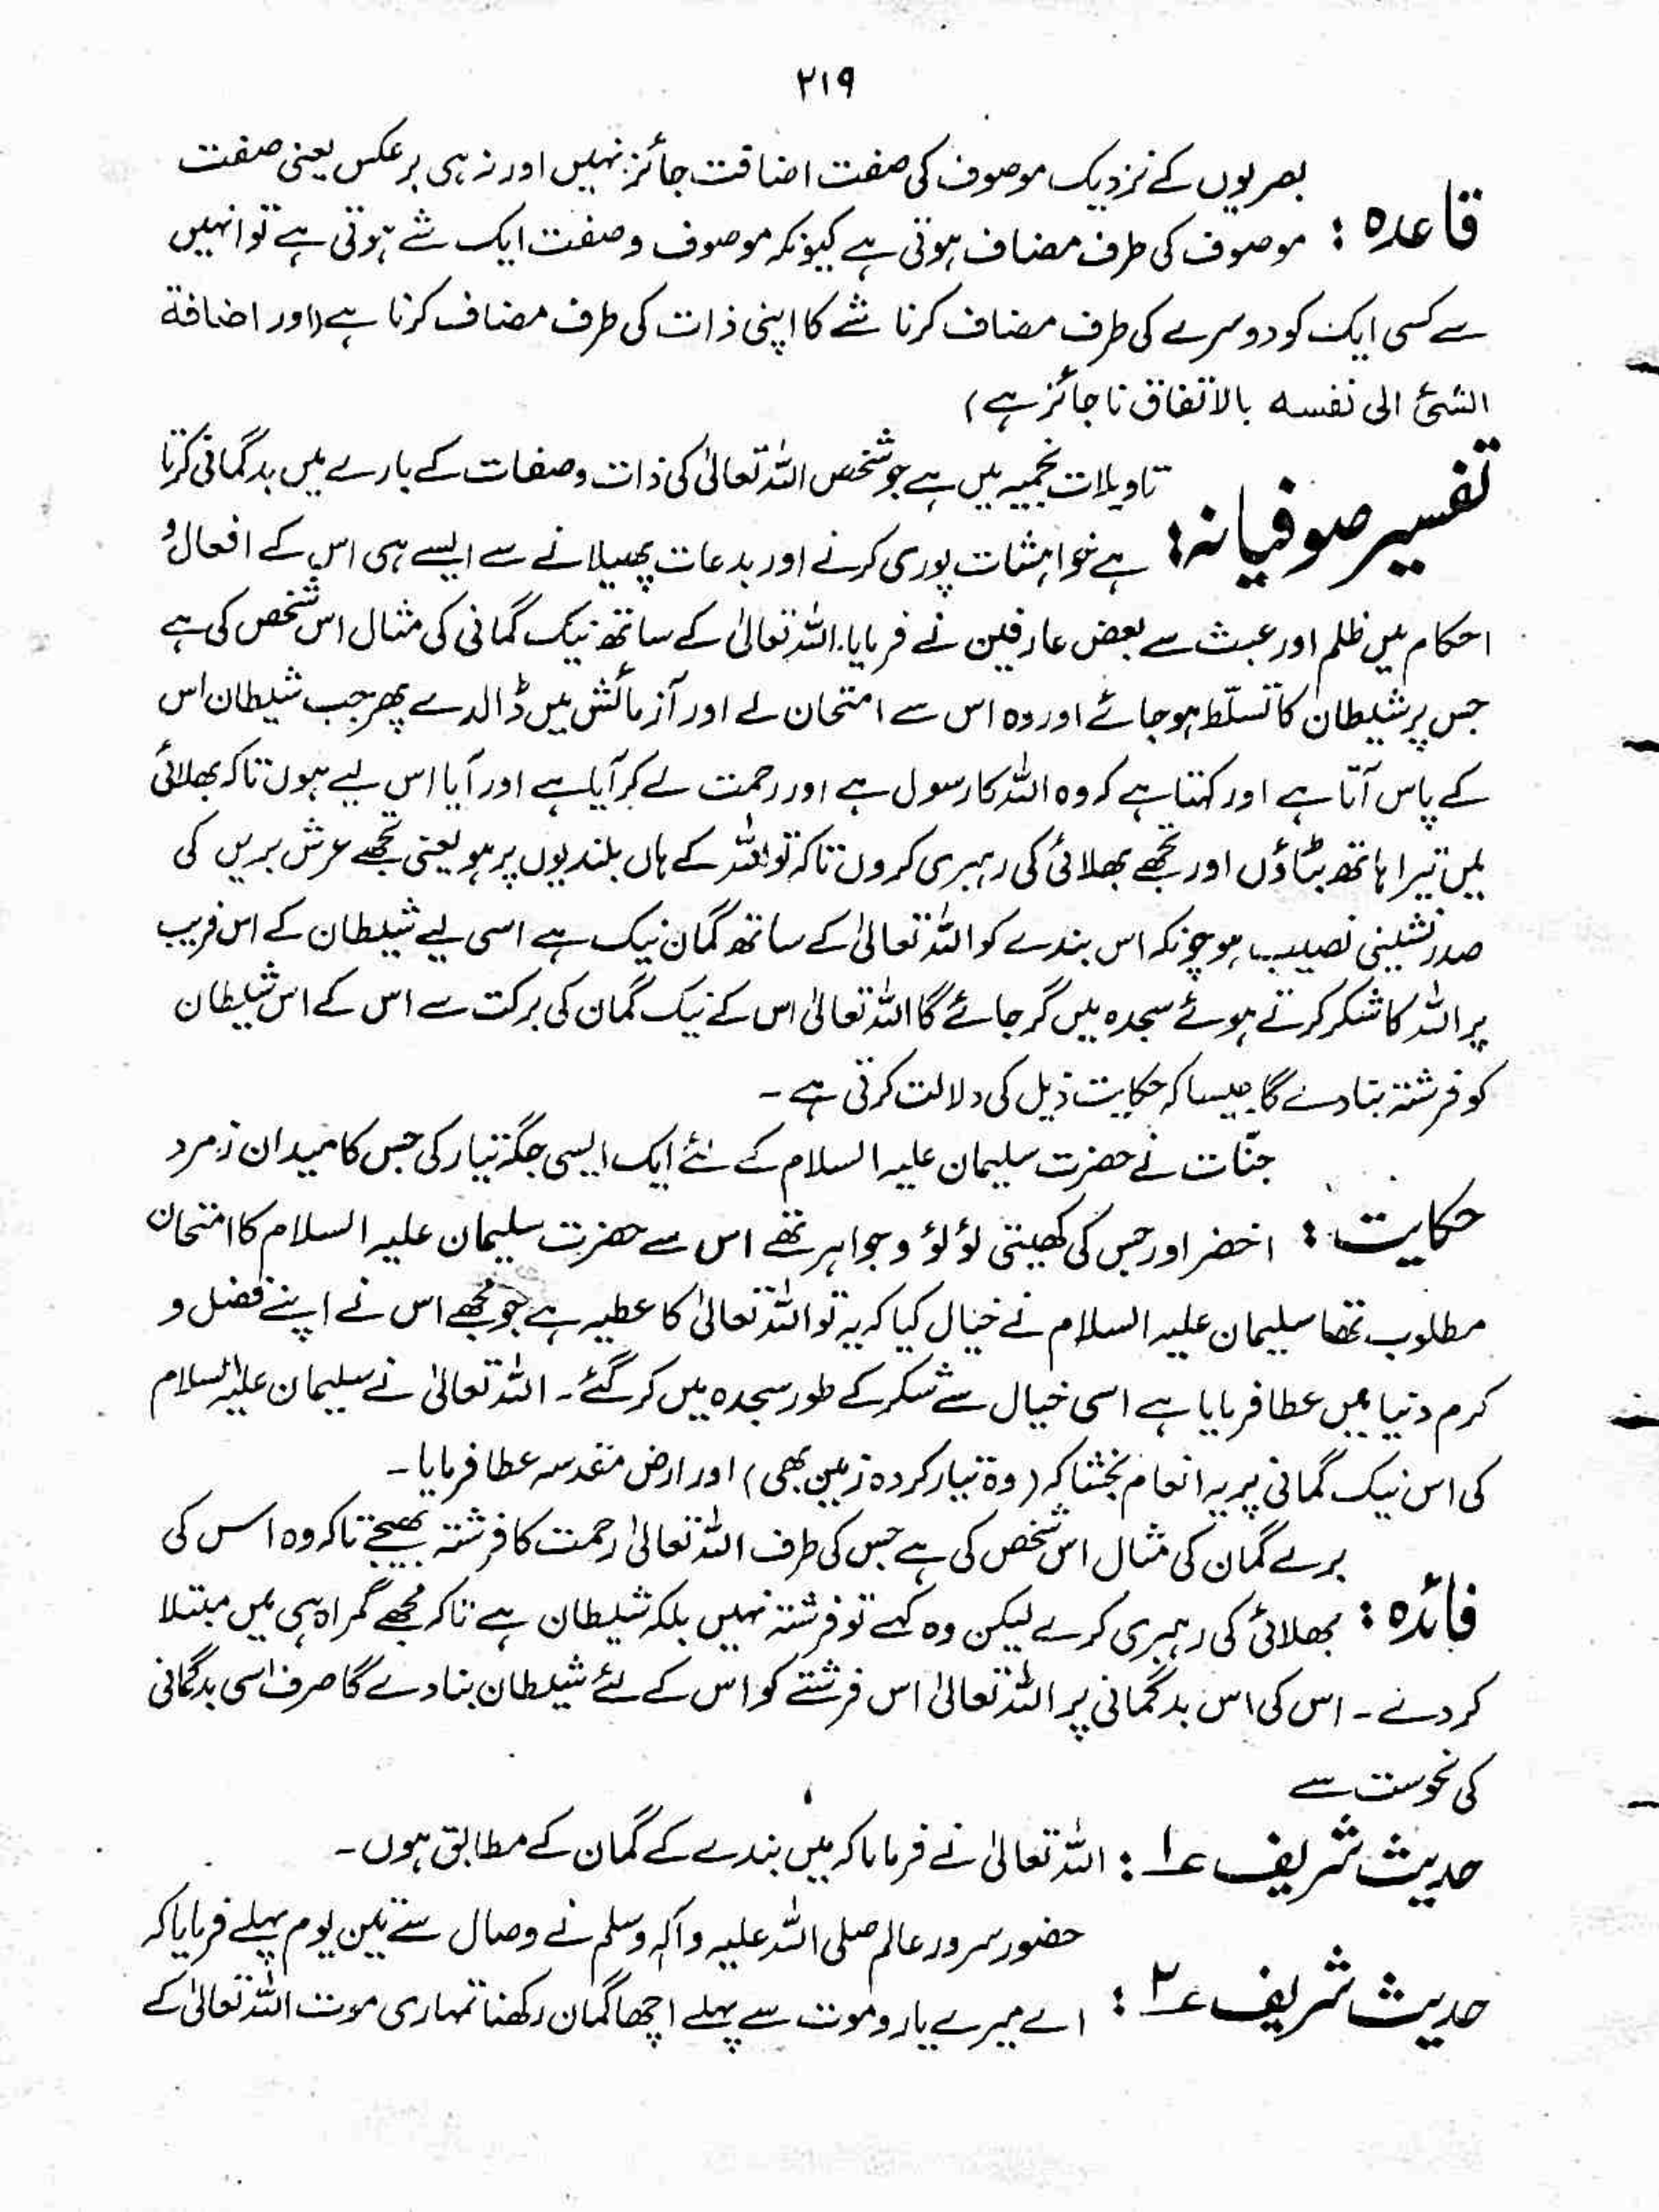 ۲۱۹
بصریوں کے نزدیک موصوف کی صفت اضافت جائز نہیں اور نہ ہی برعکس یعنی صفت
قاعدہ : موصوف کی طرف مضاف ہوتی ہے کیونکہ موصوف وصفت ایک شے ہوتی ہے تو انہیں
سے کسی ایک کو دوسرے کی طرف مضاف کرنا شے کا اپنی ذات کی طرف مضاف کرنا ہے (اور اضافۃ
الشئ الی نفسہ بالاتفاق ناجائز ہے)
تاویلات نجمیہ میں ہے جو شخص اللہ تعالیٰ کی ذات وصفات کے بارے میں بدگمانی کرتا
تفسیر صوفیانہ : ہے خواہشات پوری کرنے اور بدعات پھیلانے سے ایسے ہی اس کے افعال و
احکام میں ظلم اور عبث سے بعض عارفین نے فرمایا۔ اللہ تعالیٰ کے ساتھ نیک گمانی کی مثال اس شخص کی ہے
جس پر شیطان کا تسلّط ہو جائے اور وہ اس سے امتحان لے اور آزمائش میں ڈالدے پھر جب شیطان اس
کے پاس آتا ہے اور کہتا ہے کہ وہ اللہ کا رسول ہے اور رحمت لے کر آیا ہے اور آیا اس لیے ہوں تاکہ بھلائی
میں تیرا ہاتھ بٹاؤں اور تجھے بھلائی کی رہبری کروں تاکہ تو اللہ کے ہاں بلندیوں پر ہو یعنی تجھے عرش بریں کی
صدر نشینی نصیب ہو چونکہ اس بندے کو اللہ تعالیٰ کے ساتھ گمان نیک ہے اسی لیے شیطان کے اس فریب
پر اللہ کا شکر کرتے ہوئے سجدہ میں گر جائے گا اللہ تعالیٰ اس کے نیک گمان کی برکت سے اس کے اس شیطان
کو فرشتہ بنا دے گا جیسا کہ حکایت ذیل کی دلالت کرتی ہے ۔
جنّات نے حضرت سلیمان علیہ السلام کے لئے ایک ایسی جگہ تیار کی جس کا میدان زمرد
حکایت : اخضر اور جس کی کھیتی لؤلؤ وجواہر تھے اس سے حضرت سلیمان علیہ السلام کا امتحان
مطلوب تھا سلیمان علیہ السلام نے خیال کیا کہ یہ تو اللہ تعالیٰ کا عطیہ ہے جو مجھے اس نے اپنے فضل و
کرم دنیا میں عطا فرمایا ہے اسی خیال سے شکر کے طور سجدہ میں گر گئے ۔ اللہ تعالیٰ نے سلیمان علیہ السلام
کی اس نیک گمانی پر یہ انعام بخشا کہ (وہ تیار کردہ زمین بھی) اور ارض مقدسہ عطا فرمایا ۔
برے گمان کی مثال اس شخص کی ہے جس کی طرف اللہ تعالیٰ رحمت کا فرشتہ بھیجے تاکہ وہ اس کی
فائدہ : بھلائی کی رہبری کرے لیکن وہ کہے تو فرشتہ نہیں بلکہ شیطان ہے تاکہ مجھے گمراہی میں مبتلا
کر دے ۔ اس کی اس بدگمانی پر اللہ تعالیٰ اس فرشتے کو اس کے لئے شیطان بنا دے گا صرف اسی بدگمانی
کی نحوست سے
حدیث شریف ۱ : اللہ تعالیٰ نے فرمایا کہ میں بندے کے گمان کے مطابق ہوں ۔
حضور سرور عالم صلی اللہ علیہ وآلہ وسلم نے وصال سے تین یوم پہلے فرمایا کہ
حدیث شریف ۲ : اے میرے یارو موت سے پہلے اچھا گمان رکھنا تمہاری موت اللہ تعالیٰ کے